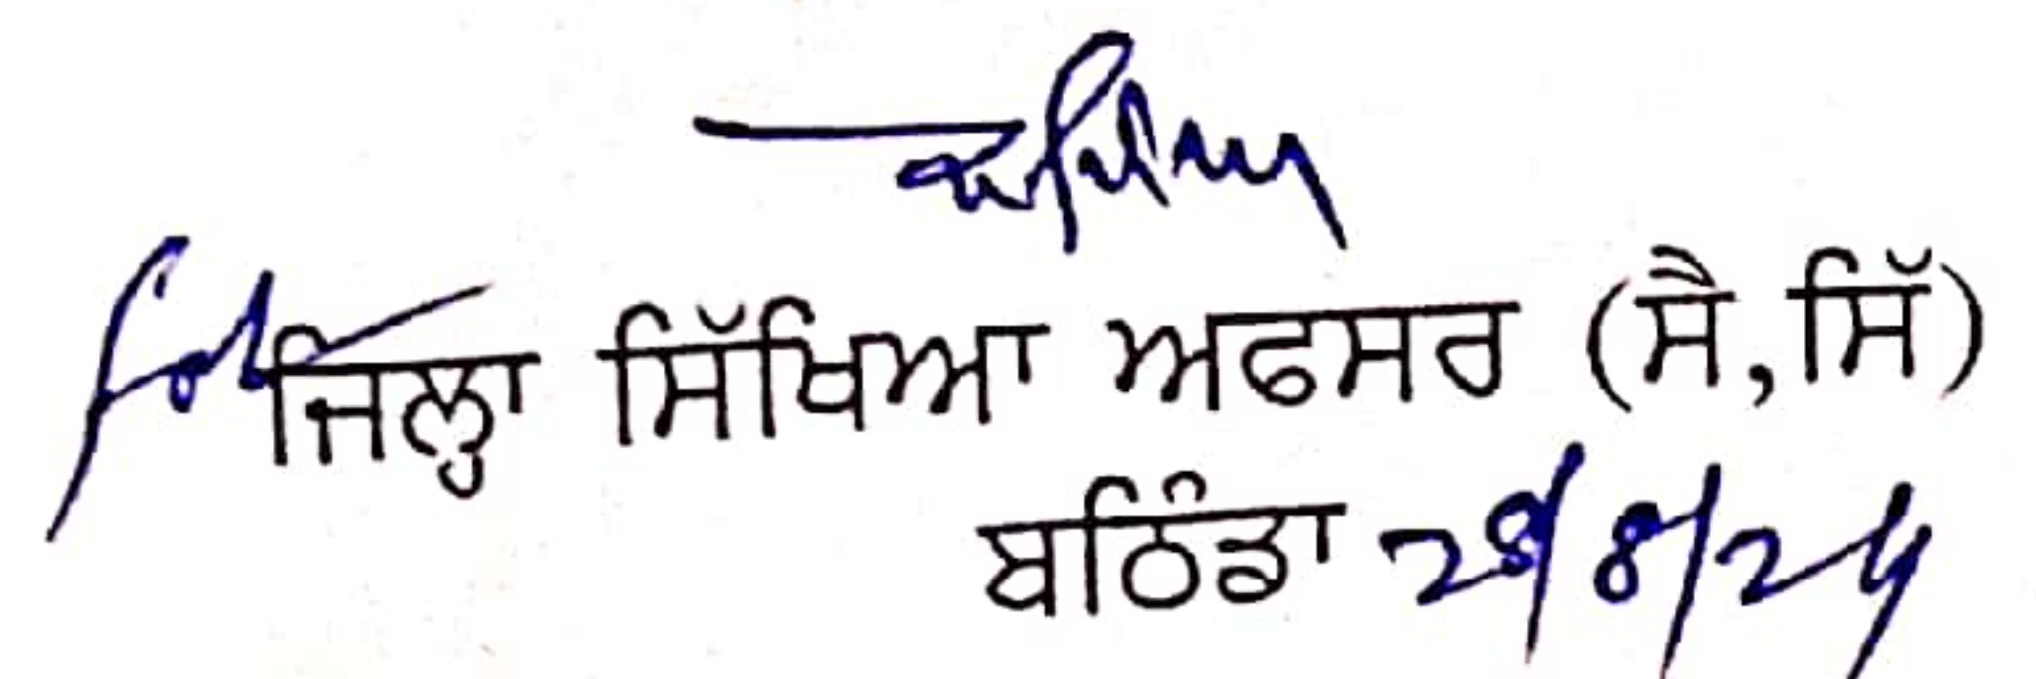 ਜ਼ਿਲ੍ਹਾ ਸਿੱਖਿਆ ਅਫਸਰ (ਸੈ,ਸਿੱ)
ਬਠਿੰਡਾ 28/8/24